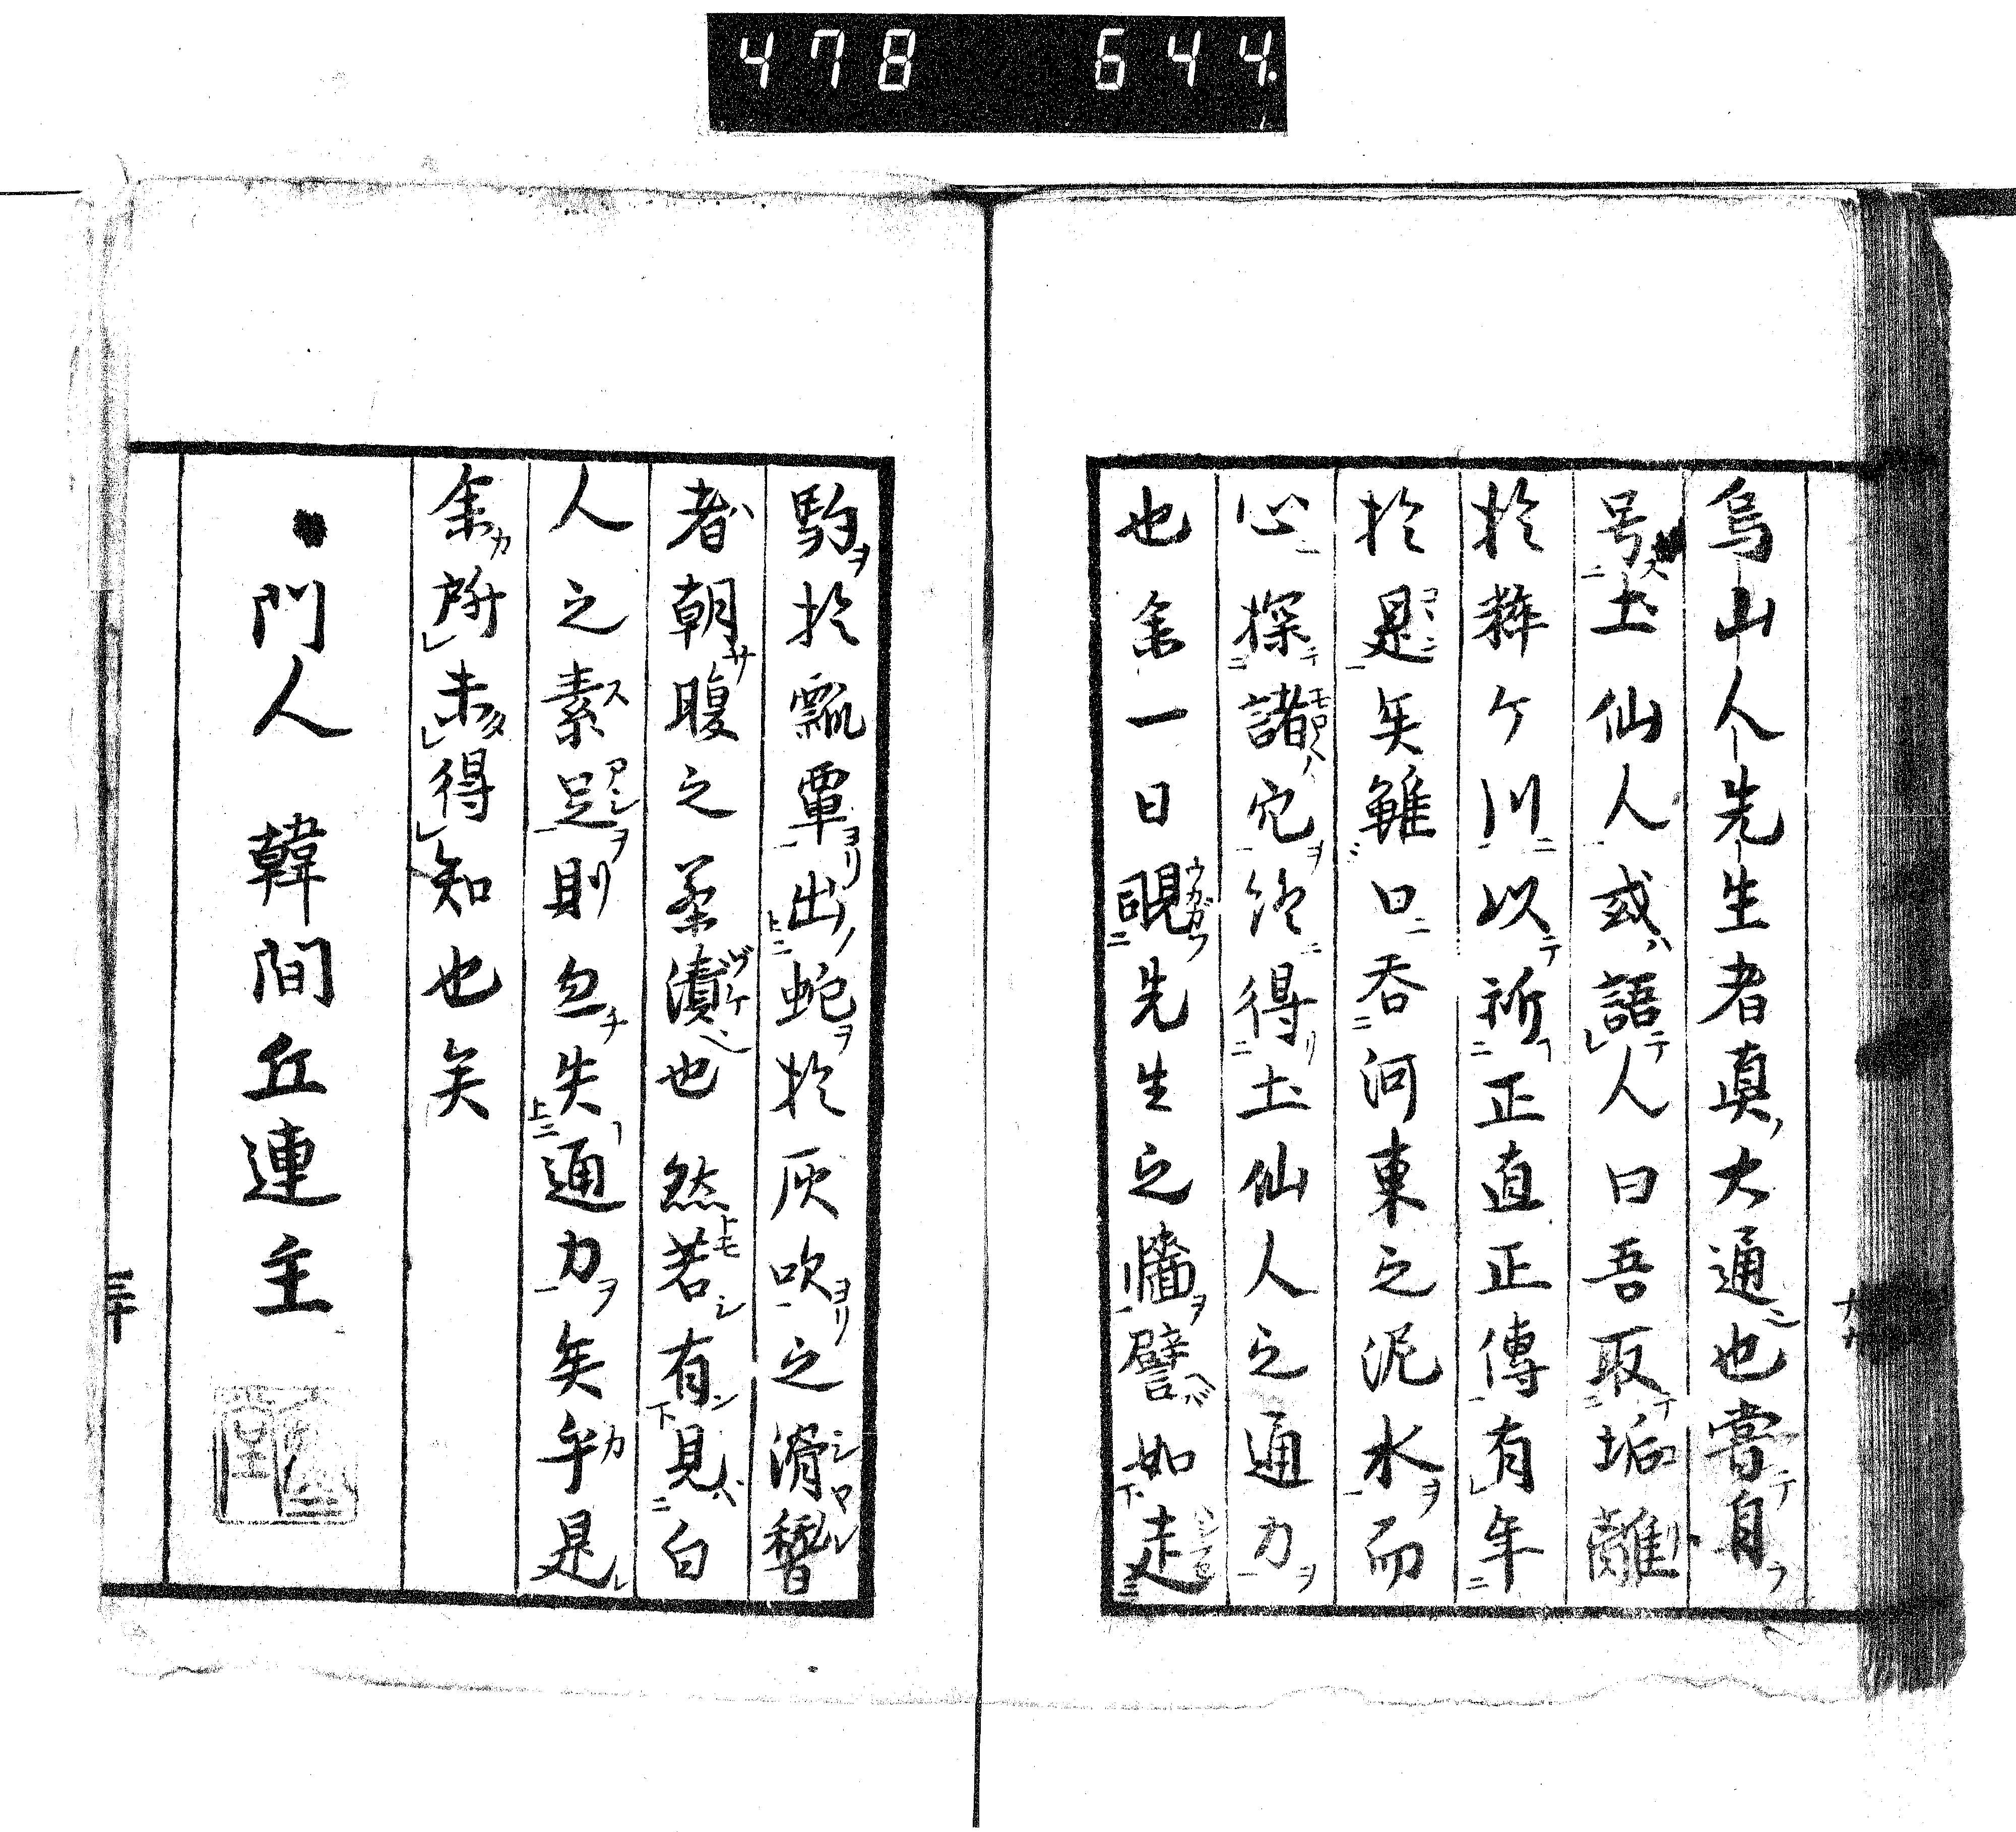 478 644.
烏山人先生者真大通也嘗自
号土仙人或語人曰吾取垢離
於粹ケ川以祈正直正傳有年
於是矣雖口吞河東之泥水而
心探諸穴終得土仙人之通力
也余一日覗先生之牆譬如走
駒於瓢覃出蛇於灰吹之滑稽
者朝腹之茶漬也然若有見白
人之素足則忽失通力矣乎是
余所未得知也矣
門人 韓間丘連主
三十